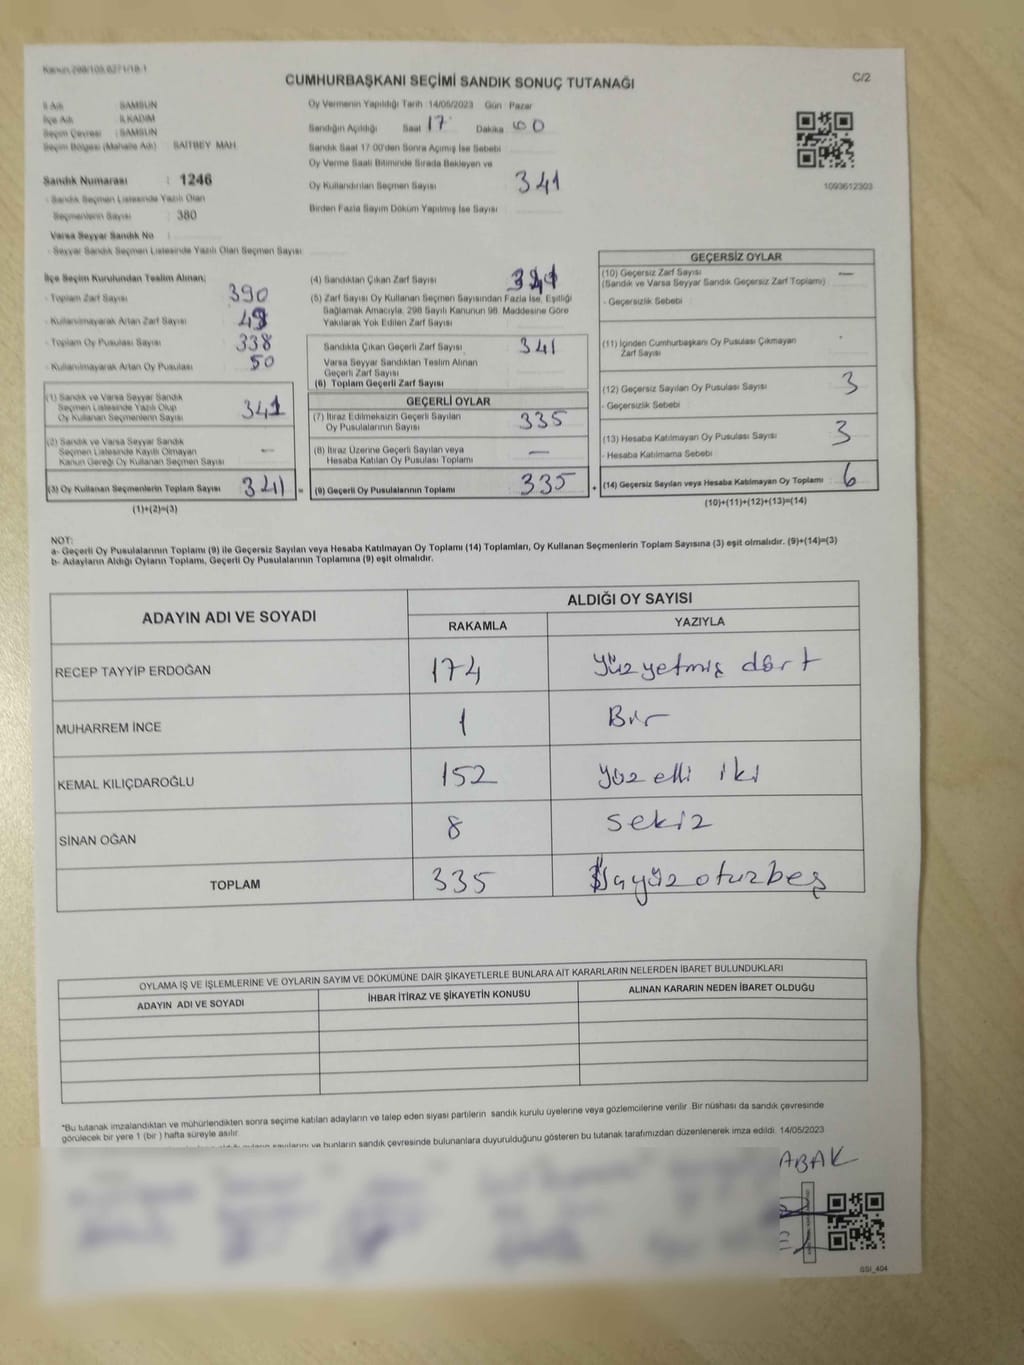 Kanun:298/103,6271/18-1
CUMHURBAŞKANI SEÇİMİ SANDIK SONUÇ TUTANAĞI
C/2
İl Adı : SAMSUN
İlçe Adı : İLKADIM
Seçim Çevresi : SAMSUN
Seçim Bölgesi (Mahalle Adı) : SAITBEY MAH.
Sandık Numarası : 1246
- Sandık Seçmen Listesinde Yazılı Olan
Seçmenlerin Sayısı : 380
Varsa Seyyar Sandık No :
- Seyyar Sandık Seçmen Listesinde Yazılı Olan Seçmen Sayısı :
Oy Vermenin Yapıldığı Tarih :14/05/2023 Gün : Pazar
Sandığın Açıldığı Saat 17 Dakika 00
Sandık Saat 17:00'den Sonra Açılmış İse Sebebi
Oy Verme Saati Bitiminde Sırada Bekleyen ve
Oy Kullandırılan Seçmen Sayısı 341
Birden Fazla Sayım Döküm Yapılmış İse Sayısı
1093612303
İlçe Seçim Kurulundan Teslim Alınan;
- Toplam Zarf Sayısı 390
- Kullanılmayarak Artan Zarf Sayısı 49
- Toplam Oy Pusulası Sayısı 338
- Kullanılmayarak Artan Oy Pusulası 50
(1) Sandık ve Varsa Seyyar Sandık
Seçmen Listesinde Yazılı Olup
Oy Kullanan Seçmenlerin Sayısı 341
(2) Sandık ve Varsa Seyyar Sandık
Seçmen Listesinde Kayıtlı Olmayan
Kanun Gereği Oy Kullanan Seçmen Sayısı —
(3) Oy Kullanan Seçmenlerin Toplam Sayısı 341
(1)+(2)=(3)
(4) Sandıktan Çıkan Zarf Sayısı 341
(5) Zarf Sayısı Oy Kullanan Seçmen Sayısından Fazla İse, Eşitliği
Sağlamak Amacıyla, 298 Sayılı Kanunun 98. Maddesine Göre
Yakılarak Yok Edilen Zarf Sayısı
Sandıkta Çıkan Geçerli Zarf Sayısı 341
Varsa Seyyar Sandıktan Teslim Alınan
Geçerli Zarf Sayısı
(6) Toplam Geçerli Zarf Sayısı
GEÇERLİ OYLAR
(7) İtiraz Edilmeksizin Geçerli Sayılan
Oy Pusulalarının Sayısı 335
(8) İtiraz Üzerine Geçerli Sayılan veya
Hesaba Katılan Oy Pusulası Toplamı —
= (9) Geçerli Oy Pusulalarının Toplamı 335 +
GEÇERSİZ OYLAR
(10) Geçersiz Zarf Sayısı —
(Sandık ve Varsa Seyyar Sandık Geçersiz Zarf Toplamı)
- Geçersizlik Sebebi
(11) İçinden Cumhurbaşkanı Oy Pusulası Çıkmayan
Zarf Sayısı
(12) Geçersiz Sayılan Oy Pusulası Sayısı 3
- Geçersizlik Sebebi
(13) Hesaba Katılmayan Oy Pusulası Sayısı 3
- Hesaba Katılmama Sebebi
(14) Geçersiz Sayılan veya Hesaba Katılmayan Oy Toplamı 6
(10)+(11)+(12)+(13)=(14)
NOT:
a- Geçerli Oy Pusulalarının Toplamı (9) ile Geçersiz Sayılan veya Hesaba Katılmayan Oy Toplamı (14) Toplamları, Oy Kullanan Seçmenlerin Toplam Sayısına (3) eşit olmalıdır. (9)+(14)=(3)
b- Adayların Aldığı Oyların Toplamı, Geçerli Oy Pusulalarının Toplamına (9) eşit olmalıdır.
ADAYIN ADI VE SOYADI ALDIĞI OY SAYISI
RAKAMLA YAZIYLA
RECEP TAYYİP ERDOĞAN 174 Yüzyetmiş dört
MUHARREM İNCE 1 Bir
KEMAL KILIÇDAROĞLU 152 Yüz elli iki
SİNAN OĞAN 8 sekiz
TOPLAM 335 yüzotuzbeş
OYLAMA İŞ VE İŞLEMLERİNE VE OYLARIN SAYIM VE DÖKÜMÜNE DAİR ŞİKAYETLERLE BUNLARA AİT KARARLARIN NELERDEN İBARET BULUNDUKLARI
ADAYIN ADI VE SOYADI İHBAR İTİRAZ VE ŞİKAYETİN KONUSU ALINAN KARARIN NEDEN İBARET OLDUĞU
*Bu tutanak imzalandıktan ve mühürlendikten sonra seçime katılan adayların ve talep eden siyasi partilerin sandık kurulu üyelerine veya gözlemcilerine verilir. Bir nüshası da sandık çevresinde
görülecek bir yere 1 (bir ) hafta süreyle asılır.
ve bunların sandık çevresinde bulunanlara duyurulduğunu gösteren bu tutanak tarafımızdan düzenlenerek imza edildi. 14/05/2023
ABAK
GSI_404